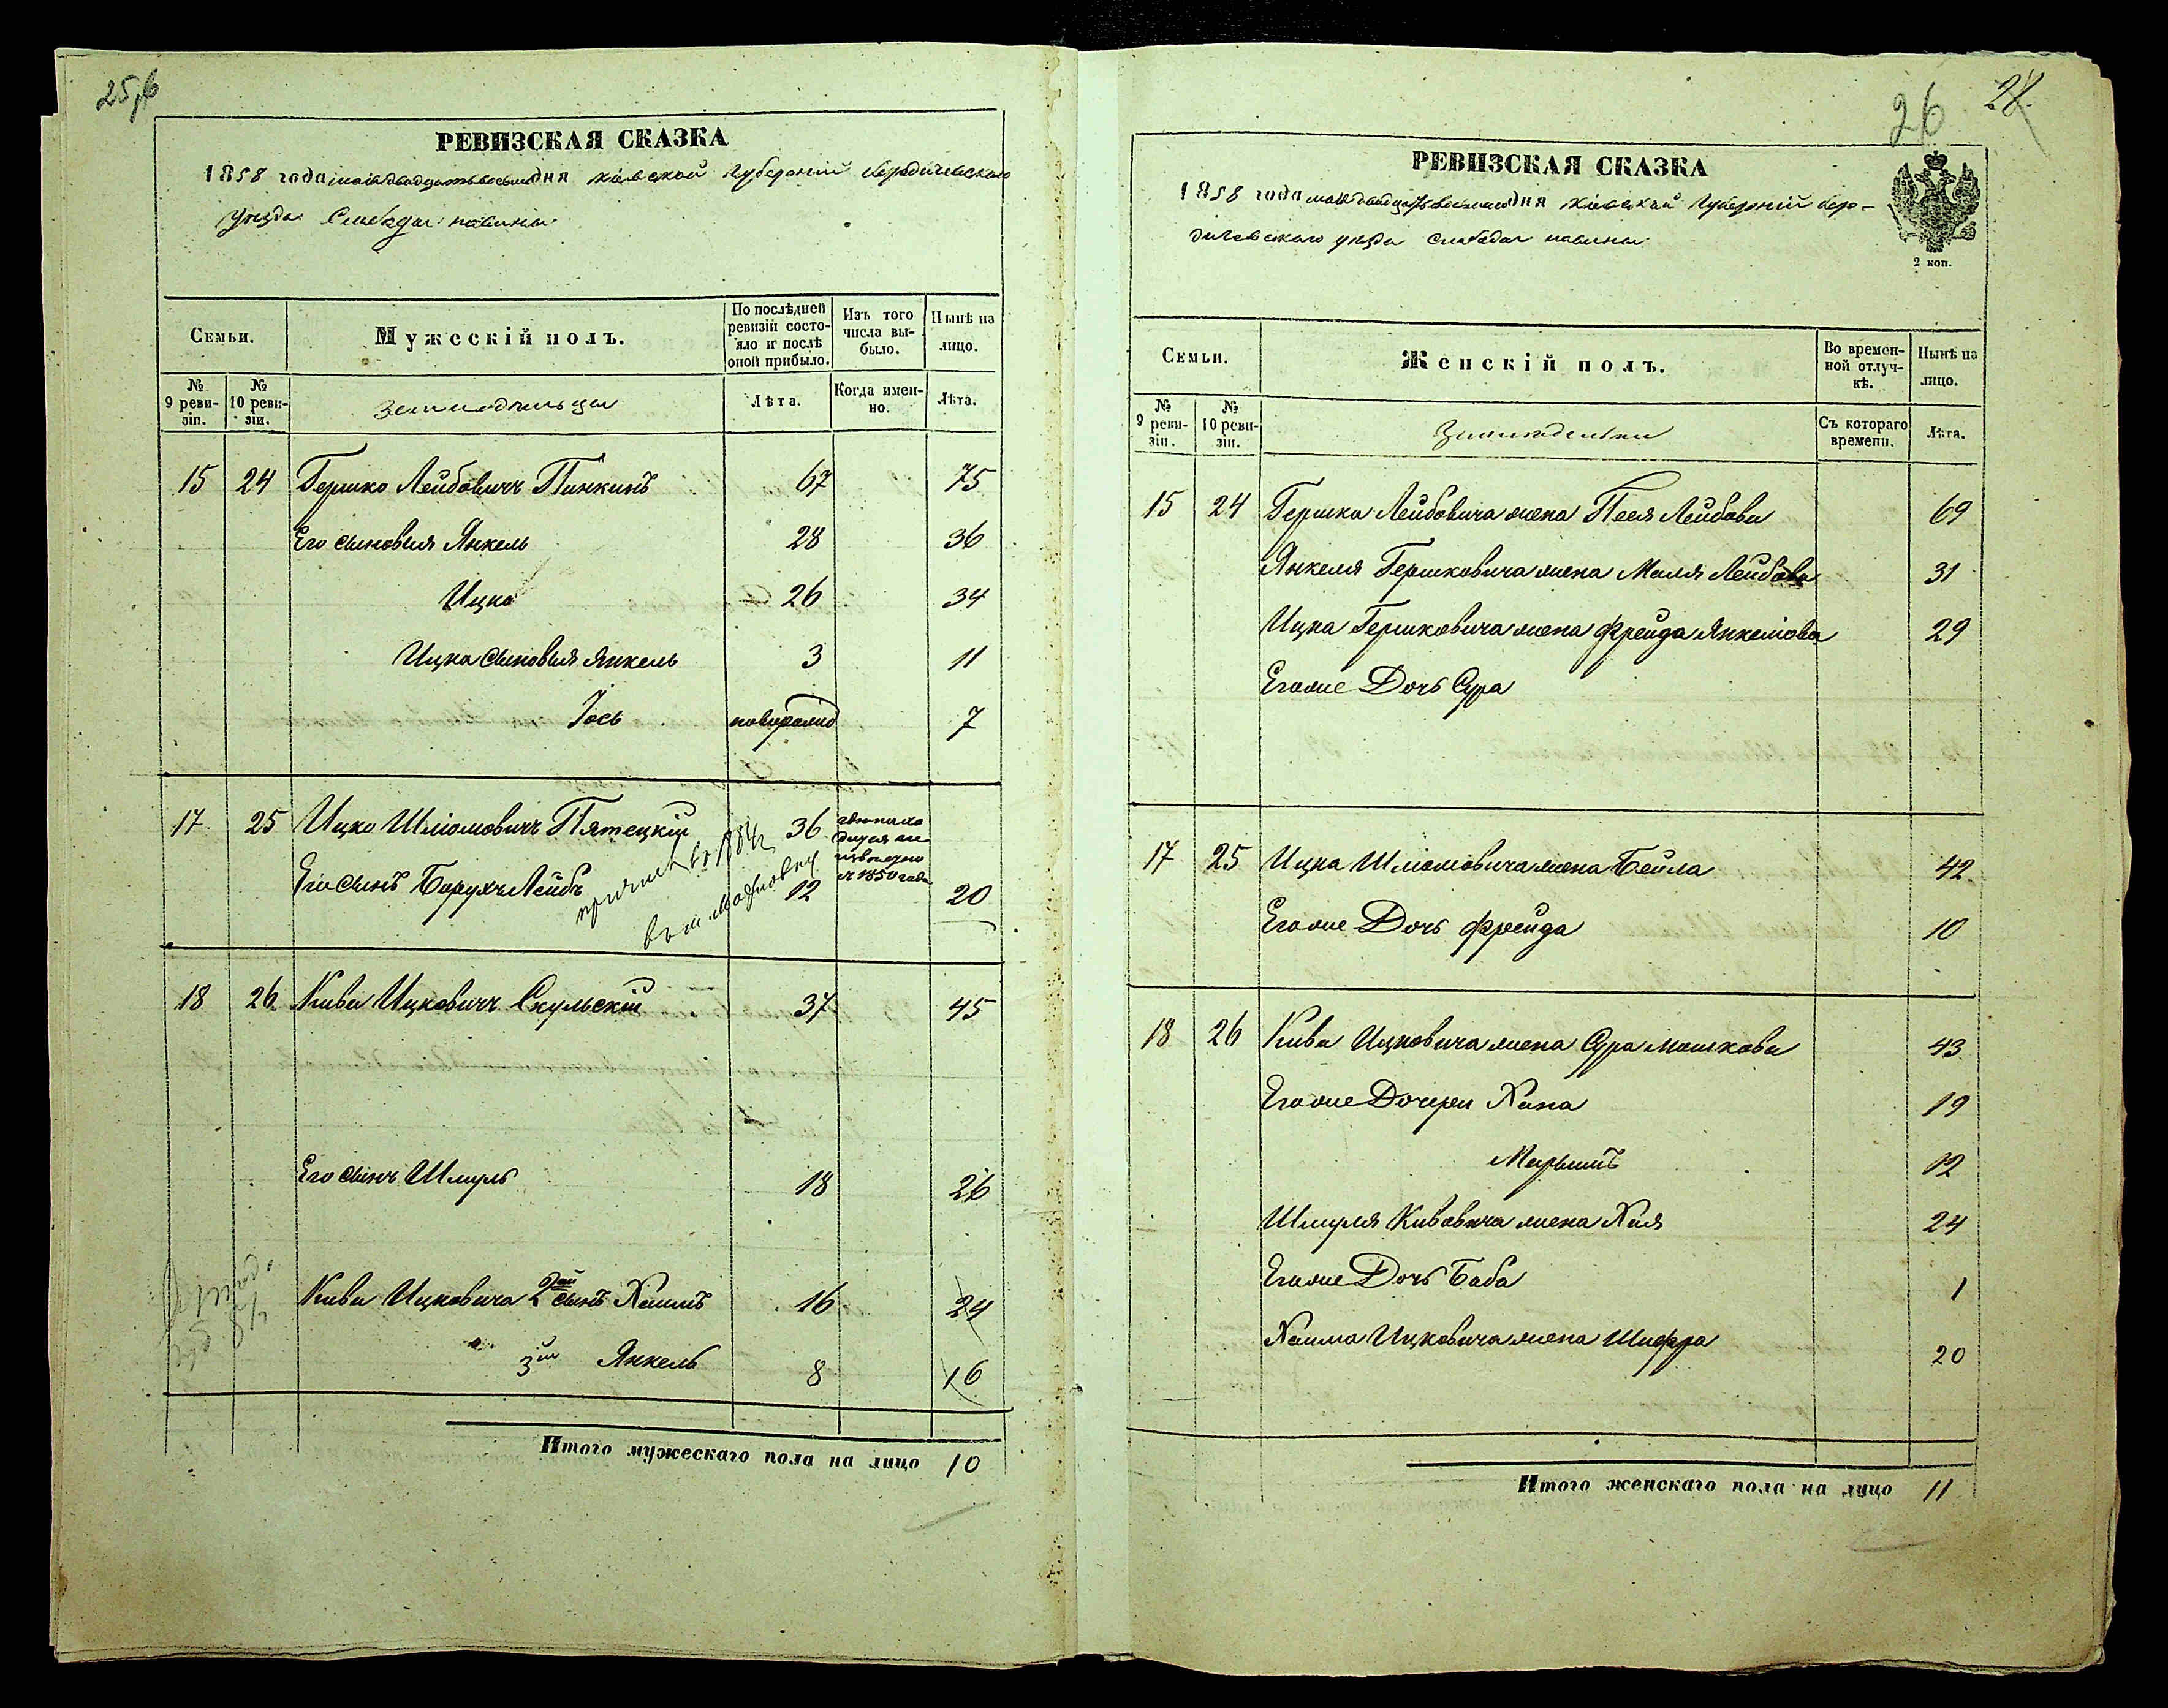 25об
РЕВИЗСКАЯ СКАЗКА
1858 года мая двадцать восьмого дня Кіевской Губерніи Бердичевского
уезда Слободы
Семьи.
Мужескій полъ.
По послѣдней ревизіи состояло и послѣ оной прибыло.
Изъ того числа выбыло.
Нынѣ на лицо.
№ 9 ревизіи.
№ 10 ревизіи.
Земледельцы
Лѣта.
Когда именно.
Лѣта.
15 24 Гершко Лейбовичъ Пинкинъ 67 75
Его сыновья Янкель 28 36
Ицко 26 34
Ицка сыновья Янкель 3 11
Іось новорожд 7
17 25 Ицко Шліомовичъ Пятецкій 36
съ 1850 года
Его сынъ Борухъ Лейбъ 12 20
18 26 Кива Ицковичъ Скульскій 37 45
Его сынъ Шмуль 18 26
Кивы Ицковича 2ой сынъ Хаимъ 16 24
3ий Янкель 8 16
Итого мужескаго пола на лицо 10
26 28
РЕВИЗСКАЯ СКАЗКА
2 коп.
1858 года мая двадцать восьмого дня Кіевской Губерніи Бер-
дичевского уезда Слободы
Семьи.
Женскій полъ.
Во временной отлучкѣ.
Нынѣ на лицо.
№ 9 ревизіи.
№ 10 ревизіи.
Съ котораго времени.
Лѣта.
15 24 Гершка Лейбовича жена Песя Лейбова 69
Янкеля Гершковича жена Маля Лейбова 31
Ицка Гершковича жена Фрейда Янкелова 29
Его же Дочь Сура
17 25 Ицка Шліомовича жена Бейла 42
Его же Дочь Фрейда 10
18 26 Кивы Ицковича жена Сура Мошкова 43
Его же Дочери Хана 19
Марьимъ 12
Шмуля Кивовича жена Хая 24
Его же Дочь Баба 1
Хаима Ицковича жена Шифра 20
Итого женскаго пола на лицо 11